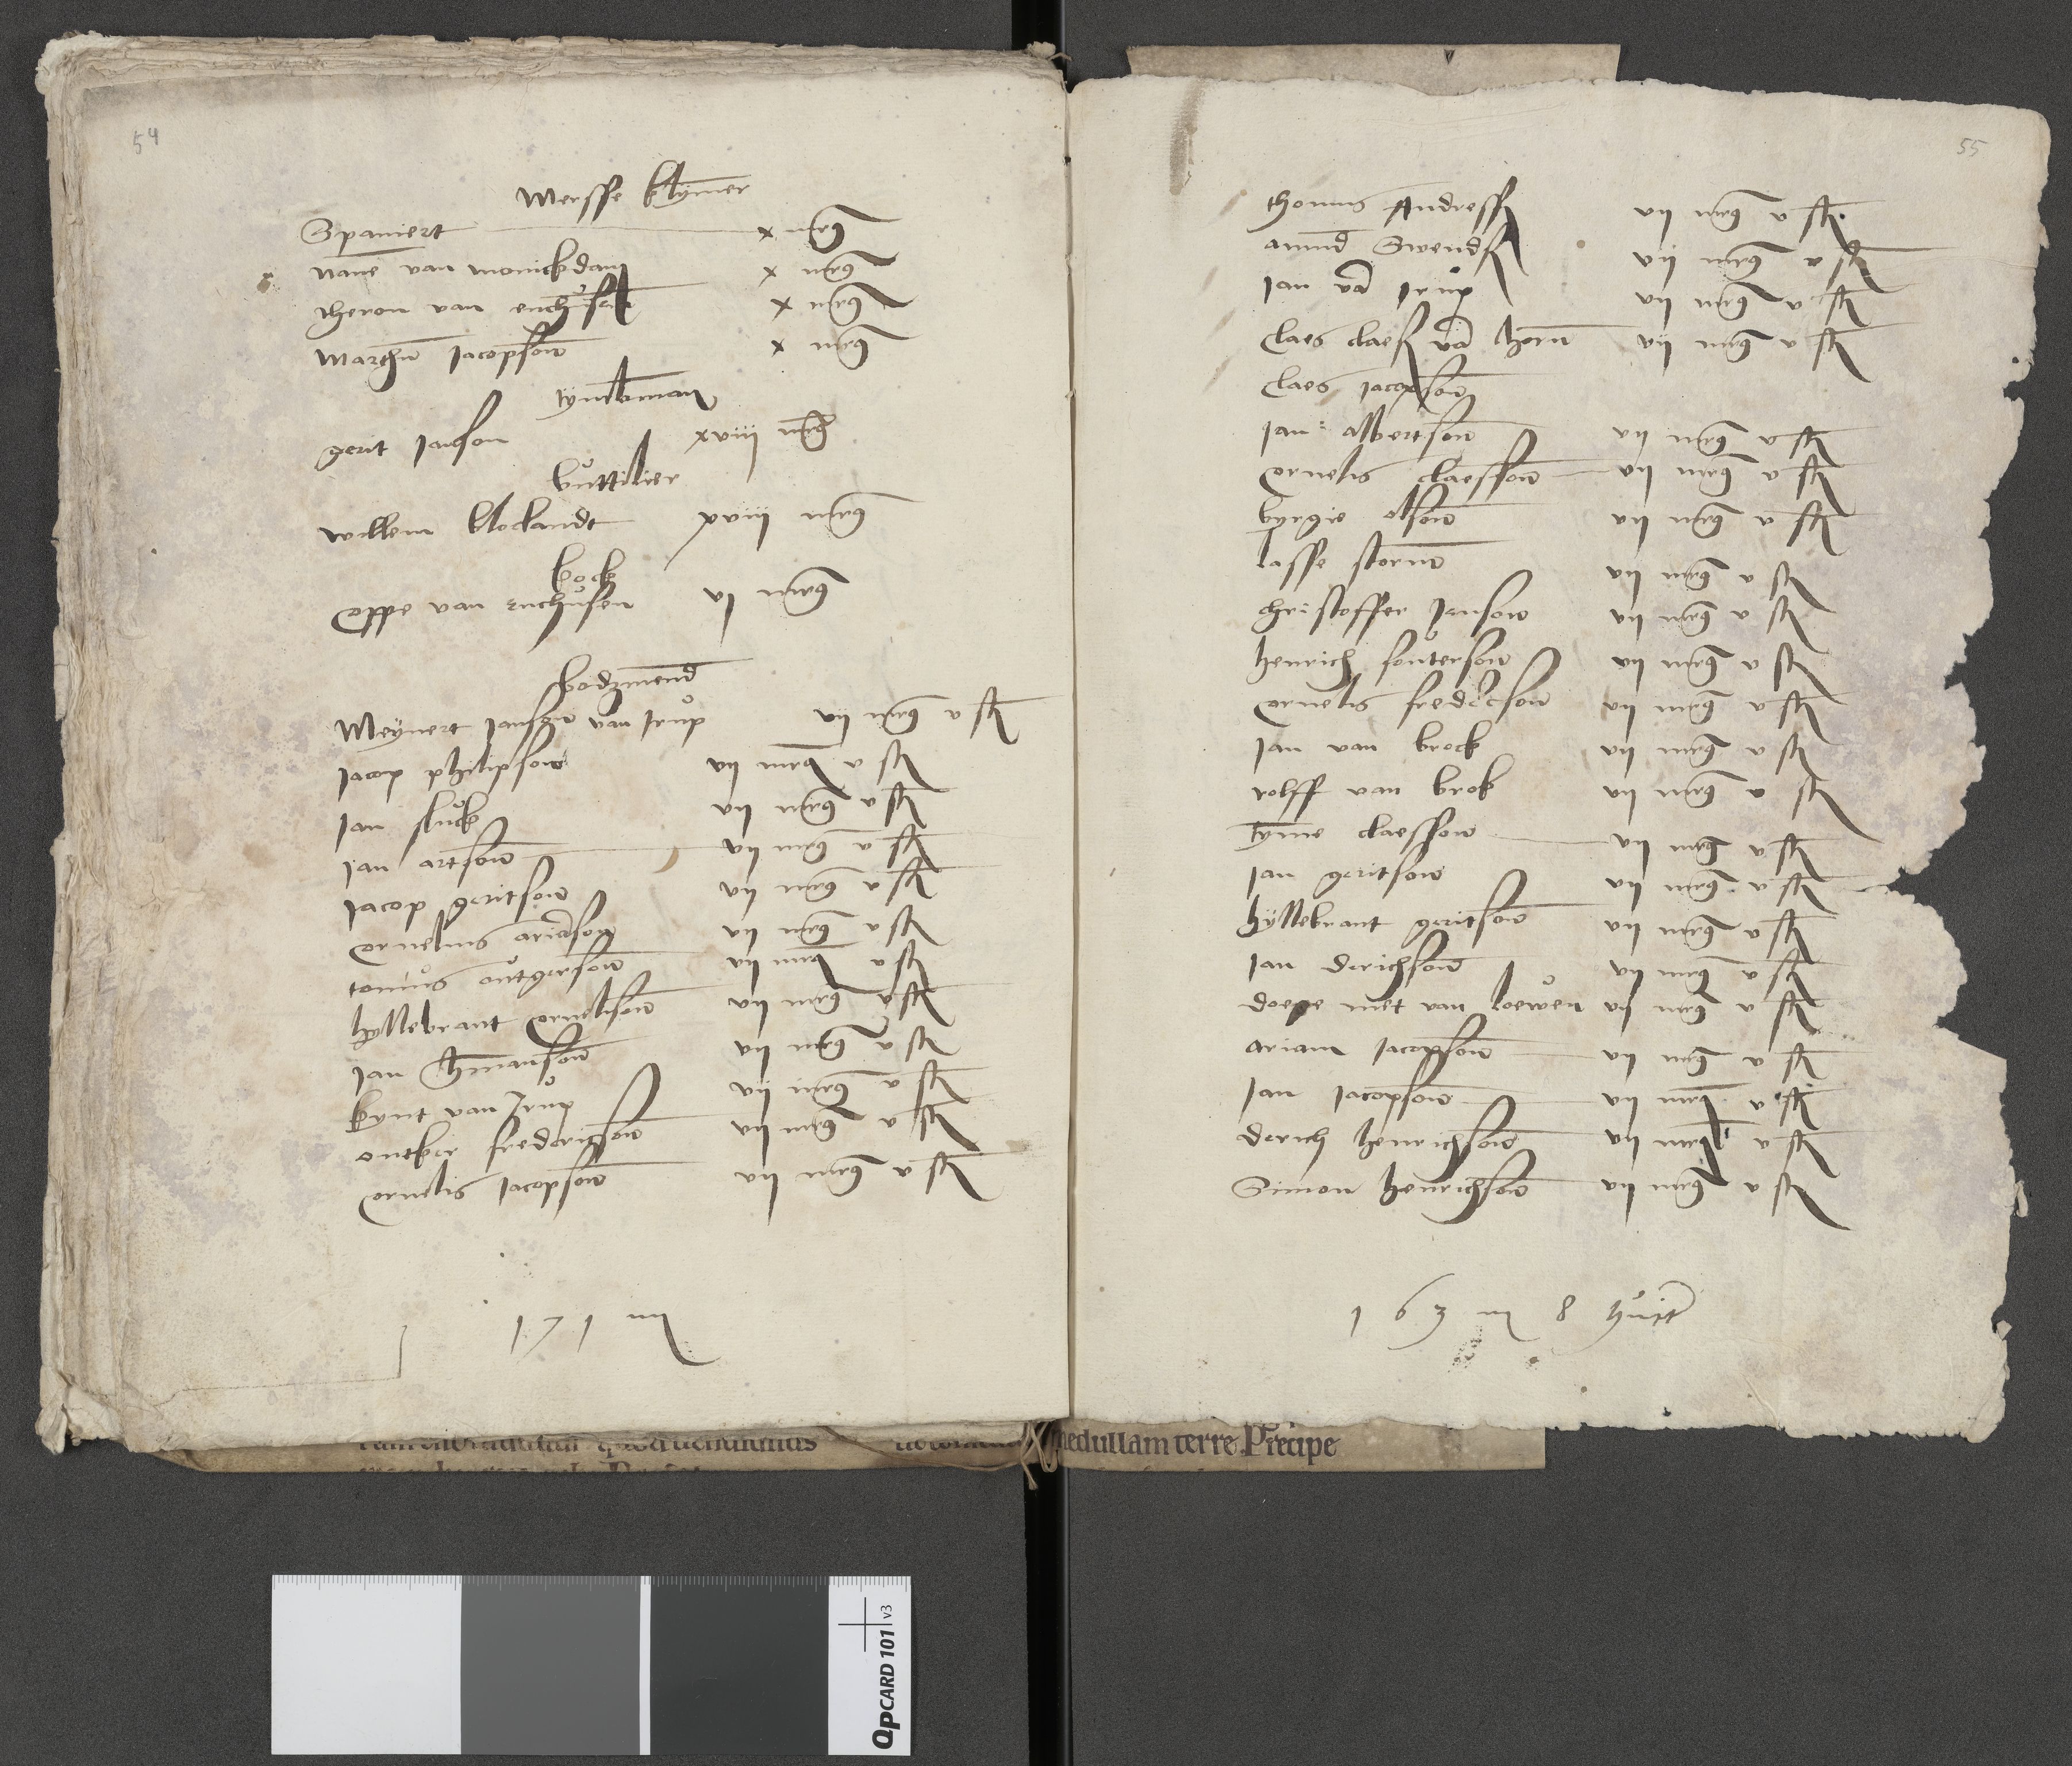 54
Mersse klymer
Spaniert x mrg
Nane van monickdam x mrg
theron van enchusen x mrg
Marthn Jacopson x mrg
tymbman
gerit Janson xviij mrg
buttilier
willem blocklandt xviij mrg
kock
Coppe van enchusen vj mrg
bodzmend
Meynert Janson van Jrup vij mrg v st
Jacop philipson vij mrg v st
Jan sluck vij mrg v st
Jan artson vij mrg v st
Jacop geritson vij mrg v st
Cornelius arianson vij mrg v st
tonius outgerson vij mrg v st
hyllebrant Cornelison vij mrg v st
Jan hmanson vij mrg v st
kynt van Jrup vij mrg v st
outker frederitson vij mrg v st
Cornelis Jacopson vij mrg v st
171 m
55
thomas Andress vij mrg v st
amund Swends vij mrg v st
Jan va Jrup vij mrg v st
Claes claess va horn vij mrg v st
Claes Jacopson
Jan albertson vij mrg v st
Cornelis claesson vij mrg v st
byrgie olson vij mrg v st
lasse storm vij mrg v st
christoffer Janson vij mrg v st
henrich souterson vij mrg v st
Cornelis fredicson vij mrg v st
Jan van brock vij mrg v st
rolff van brok vij mrg v st
tyme claesson vij mrg v st
Jan geritson vij mrg v st
hyllebrant geritson vij mrg v st
Jan derichson vij mrg v st
doepe met van loewen vij mrg v st
ariann Jacopson vij mrg v st
Jan Jacopson vij mrg v st
derich henrichson vij mrg v st
Simon henrichson vij mrg v st
163 m 8 huit
medullam terre Precipe
QPCARD 101 v3